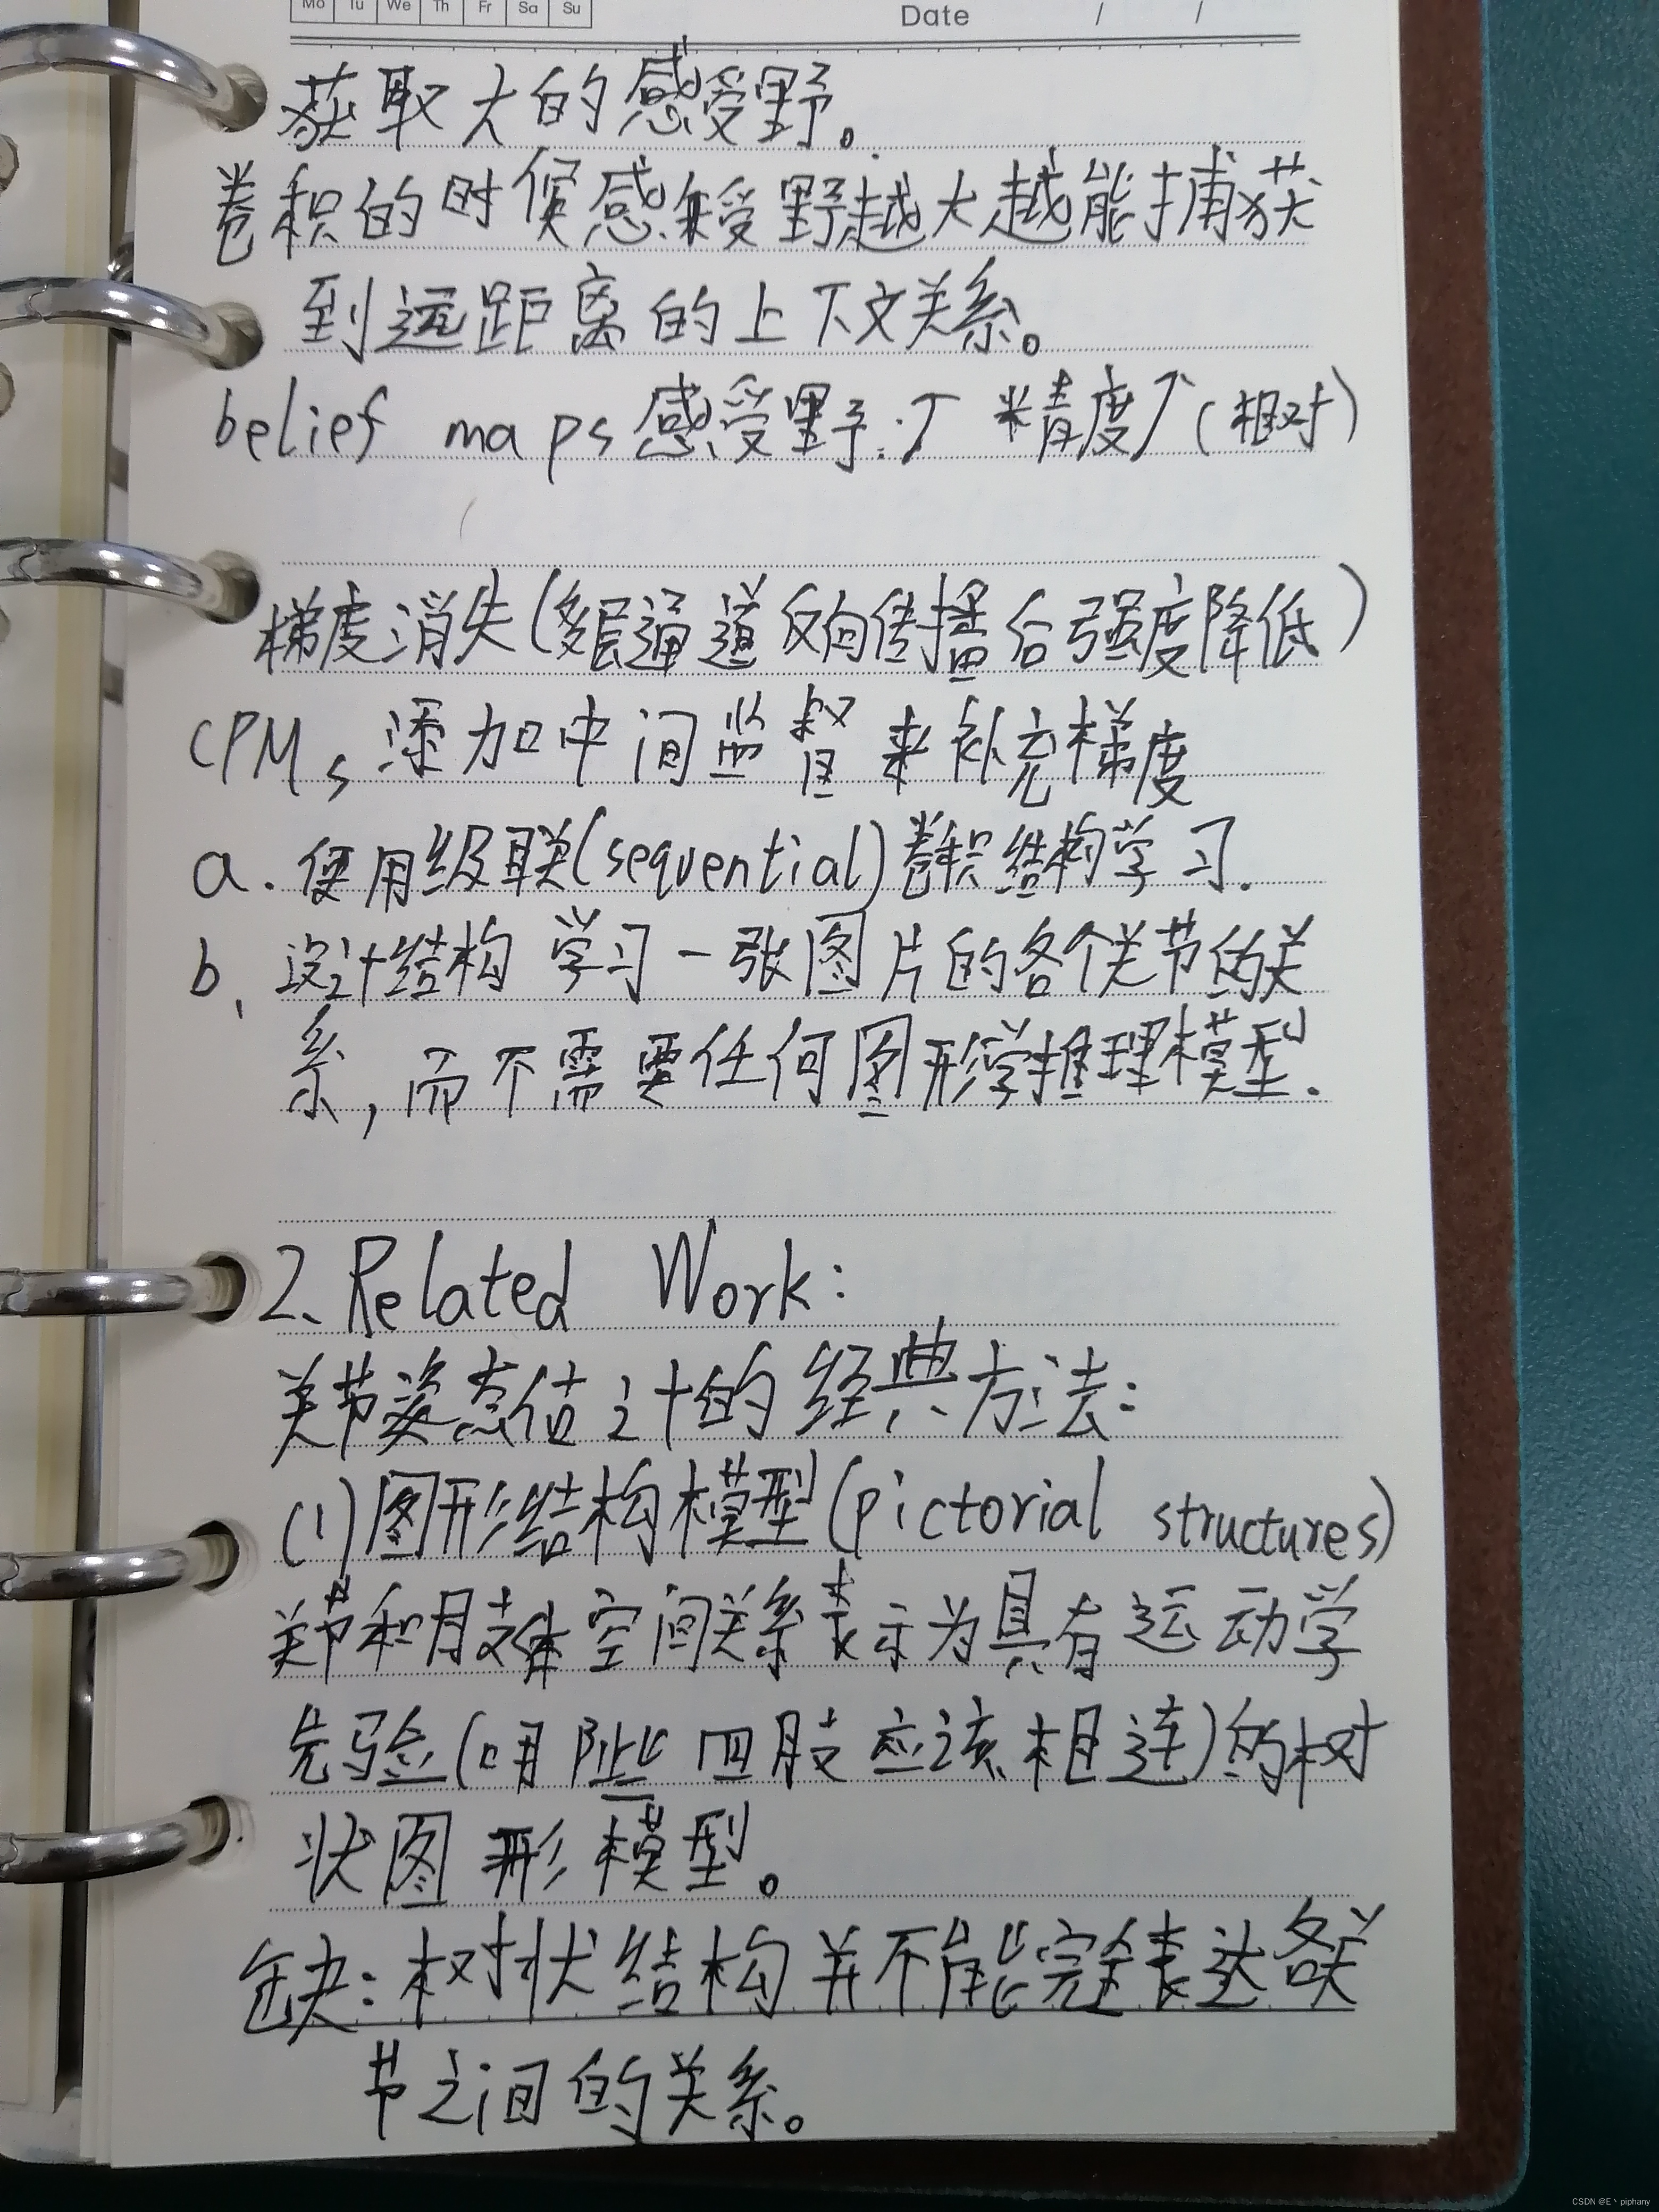 Mo Tu We Th Fr Sa Su
Date / /
获取大的感受野。
卷积的时候感受野越大越能捕获
到远距离的上下文关系。
belief maps感受野:↑ 精度↑(相对)
梯度消失(多层通道反向传播后强度降低)
CPMs添加中间监督来补充梯度
a.使用级联(sequential)卷积结构学习.
b、设计结构学习一张图片的各个关节的关
系,而不需要任何图形学推理模型.
2、Related Work:
关节姿态估计的经典方法:
(1)图形结构模型(pictorial structures)
关节和肢体空间关系表示为具有运动学
先验(四肢应该相连)的树
状图形模型。
缺:树状结构并不能完全表达各关
节之间的关系。
CSDN @E丶piphany